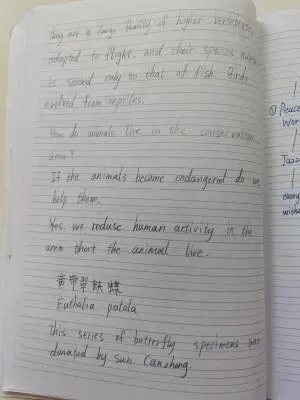 They are a large family of higher vertebrates
adapted to flight, and their species number
is second only to that of fish. Birds
evolved from reptiles.
How do animals live in the conservation
area?
If the animals become endangered do we
help them.
Yes, we reduse human activity in the
area that the animeal live.
黄带翠蛱蝶
Euthalia patala
This series of butterfly specimens was
donated by sun Canzhang.
①Peace
Wor
Jazz